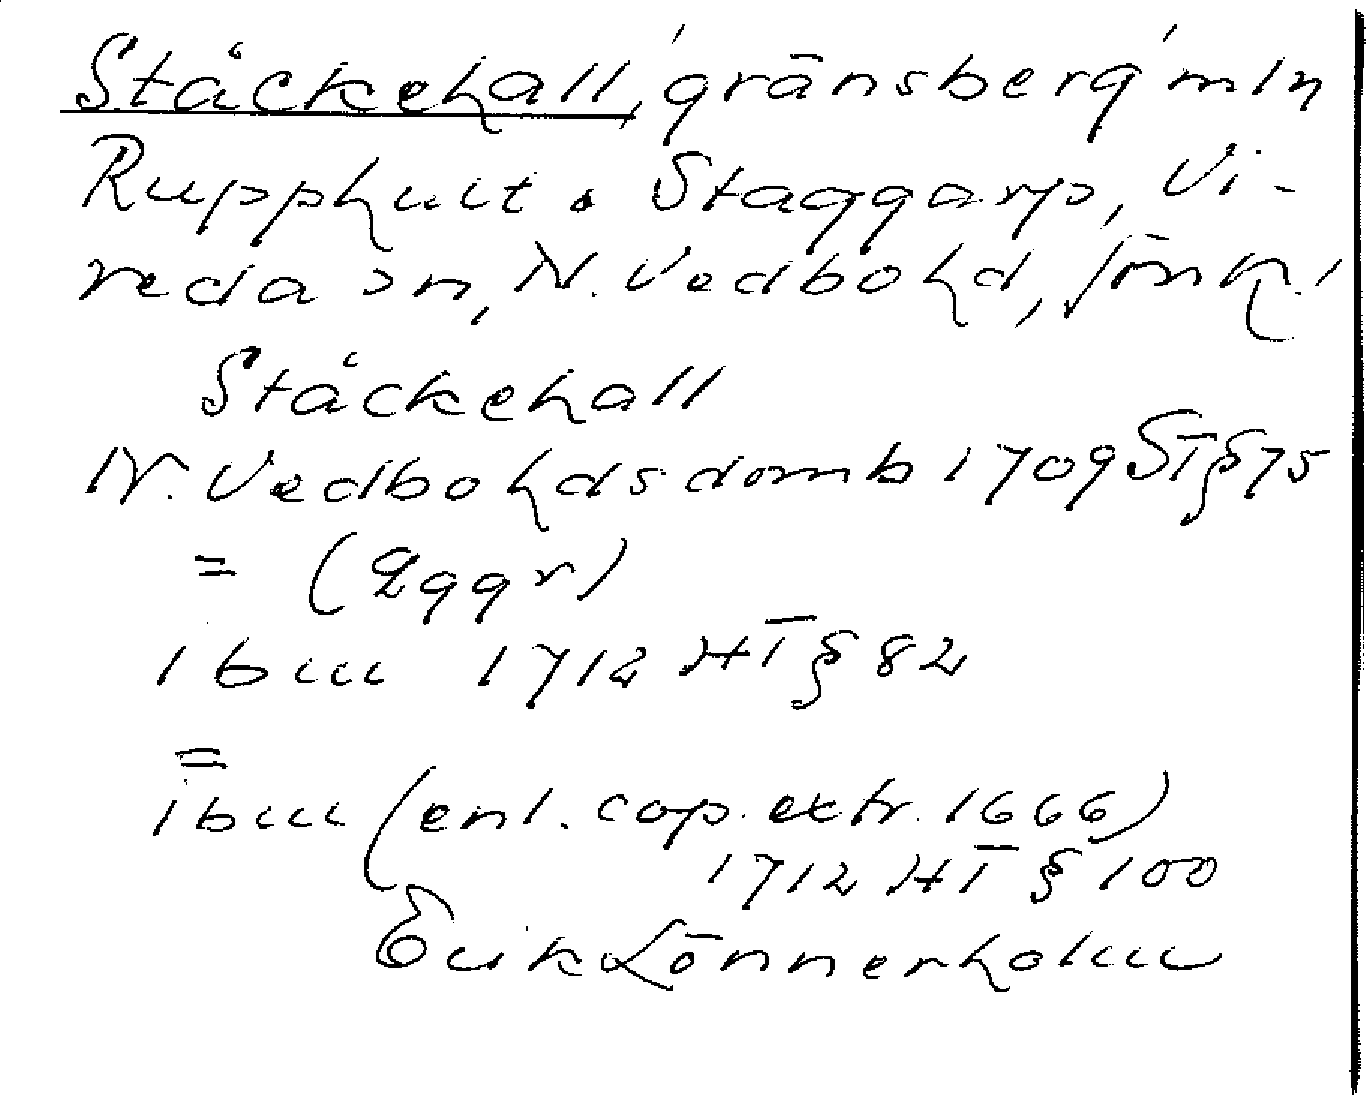 Ståckehall, 'gränsberg' mln
Rupphult o Staggarp, Vi-
reda sn, N. Vedbohd, Jönk.l
Ståckehall
N. Vedbohdsdomb 1709 ST § 75
= (2ggr)
ibm 1712 HT § 82
=
ibm (enl. cop. extr. 1666)
1712 HT § 100
Erik Lönnerholm